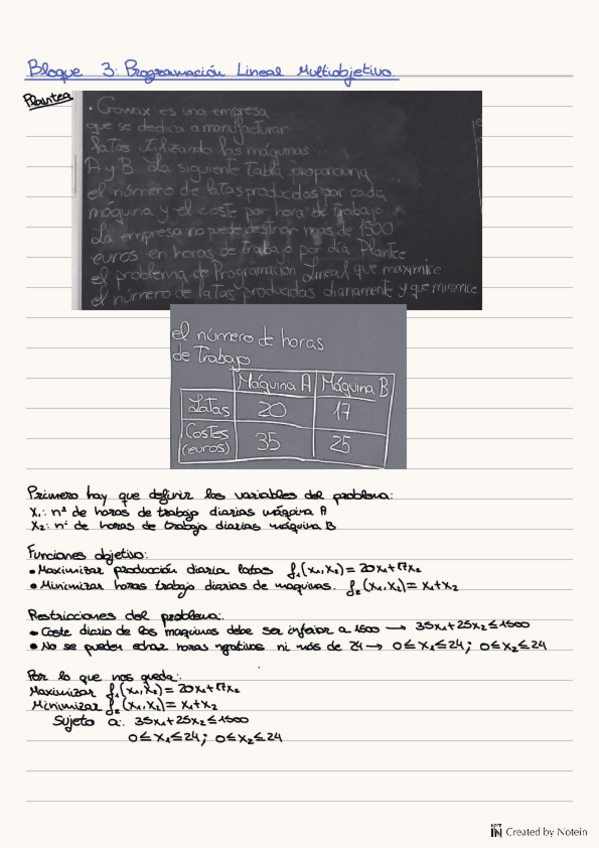 Bloque 3: Programación Lineal Multiobjetivo
Plantea
• Crowax es una empresa
que se dedica a manufacturar
latas utilizando las máquinas
A y B. La siguiente tabla proporciona
el número de latas producidos por cada
máquina y el coste por hora de trabajo
La empresa no puede destinar mas de 1500
euros en horas de trabajo por día Plantee
el problema de Programación Lineal que maximice
el número de latas producidas diariamente y que minimice
el número de horas
de Trabajo
Máquina A Máquina B
Latas 20 17
Costes (euros) 35 25
Primero hay que definir las variables del problema:
x₁: nº de horas de trabajo diarias máquina A
x₂: nº de horas de trabajo diarias máquina B
Funciones objetivo:
• Maximizar producción diaria latas f₁(x₁,x₂)=20x₁+17x₂
• Minimizar horas trabajo diarias de maquinas. f₂(x₁,x₂)=x₁+x₂
Restricciones del problema:
• Coste diario de las maquinas debe ser inferior a 1500 → 35x₁+25x₂≤1500
• No se pueden echar horas negativas ni más de 24 → 0≤x₁≤24; 0≤x₂≤24
Por lo que nos queda:
Maximizar f₁(x₁,x₂)=20x₁+17x₂
Minimizar f₂(x₁,x₂)=x₁+x₂
Sujeto a: 35x₁+25x₂≤1500
0≤x₁≤24; 0≤x₂≤24
NOTE IN Created by Notein